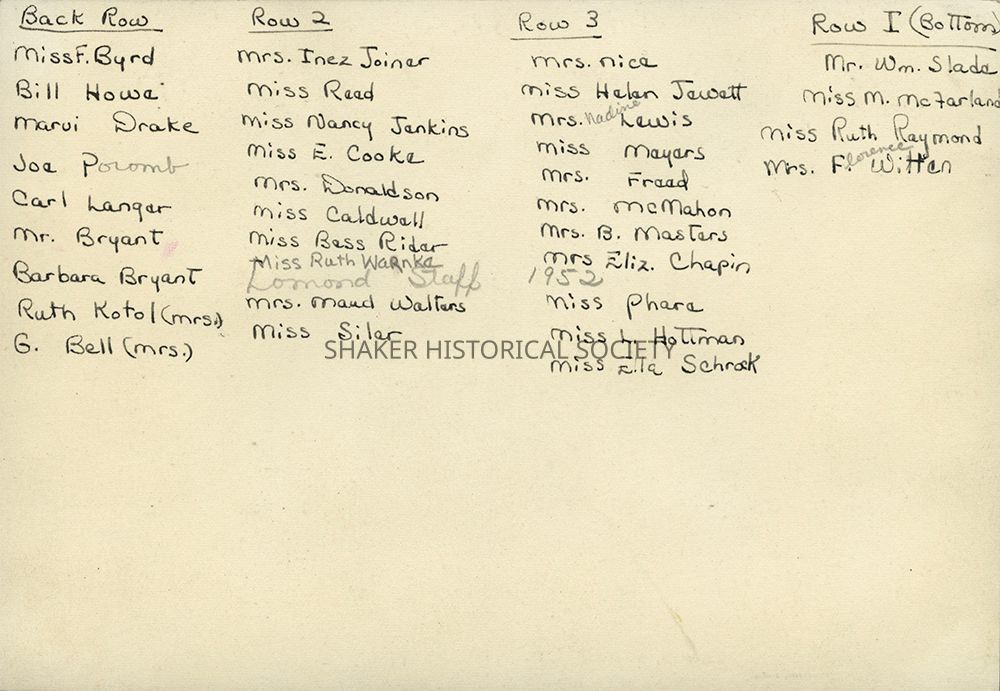 Back Row
Miss F. Byrd
Bill Howe
Marvi Drake
Joe Pocomb
Carl Langer
Mr. Bryant
Barbara Bryant
Ruth Kotol (mrs.)
G. Bell (mrs.)
Row 2
Mrs. Inez Joiner
Miss Reed
Miss Nancy Jenkins
Miss E. Cooke
Mrs. Donaldson
Miss Caldwell
Miss Bess Rider
Miss Ruth Warnke
Lomond Staff 1952
Mrs. Maud Walters
Miss Siler
Row 3
Mrs. Nice
Miss Helen Jewett
Mrs. Nadine Lewis
Miss Meyers
Mrs. Freed
Mrs. McMahon
Mrs. B. Masters
Mrs Eliz. Chapin
Miss Phare
Miss L. Hottman
Miss Ella Schrock
Row I (Bottom)
Mr. Wm. Slade
Miss M. McFarland
Miss Ruth Raymond
Mrs. Florence Witten
SHAKER HISTORICAL SOCIETY